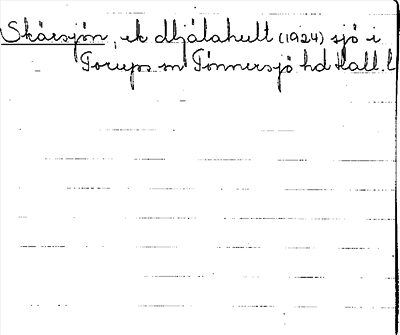 Skärsjön, ek Mjälahult (1924) sjö i
Torups sn Tönnersjö hd Hall. l